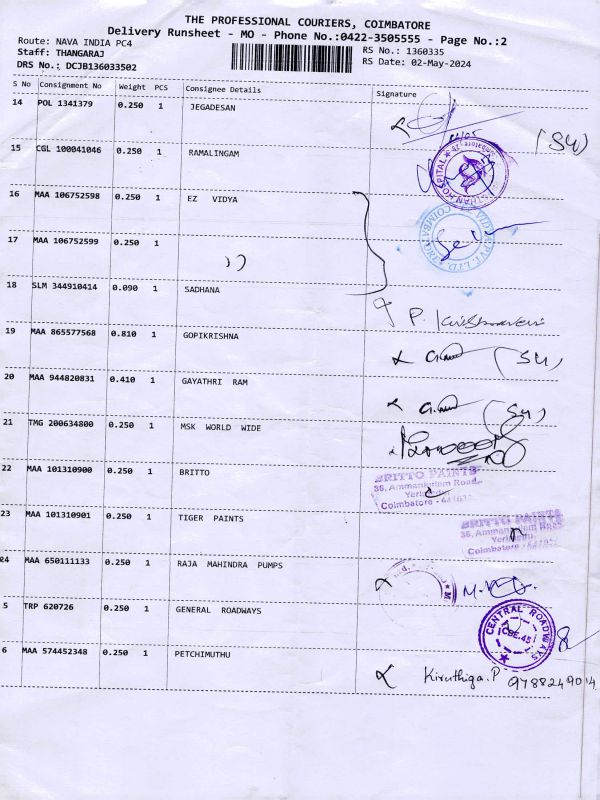 THE PROFESSIONAL COURIERS, COIMBATORE
Delivery Runsheet - MO - Phone No.:0422-3505555 - Page No.:2
Route: NAVA INDIA PC4
Staff: THANGARAJ
DRS No.: DCJB136033502
RS No.: 1360335
RS Date: 02-May-2024
S No Consignment No Weight PCS Consignee Details Signature
14 POL 1341379 0.250 1 JEGADESAN (S4)
15 CGL 100041046 0.250 1 RAMALINGAM
HOSPITAL
16 MAA 106752598 0.250 1 EZ VIDYA
17 MAA 106752599 0.250 1
18 SLM 344910414 0.090 1 SADHANA
19 MAA 865577568 0.810 1 GOPIKRISHNA (S4)
20 MAA 944820831 0.410 1 GAYATHRI RAM (S4)
21 TMG 200634800 0.250 1 MSK WORLD WIDE
22 MAA 101310900 0.250 1 BRITTO
BRITTO PAINTS
36, Ammankulam Road
Coimbatore
23 MAA 101310901 0.250 1 TIGER PAINTS
BRITTO PAINTS
36, Ammankulam Road
Coimbatore
24 MAA 650111133 0.250 1 RAJA MAHINDRA PUMPS
5 TRP 620726 0.250 1 GENERAL ROADWAYS
CENTRAL ROADWAYS
CBE-45
6 MAA 574452348 0.250 1 PETCHIMUTHU Kiruthiga.P 9788249014